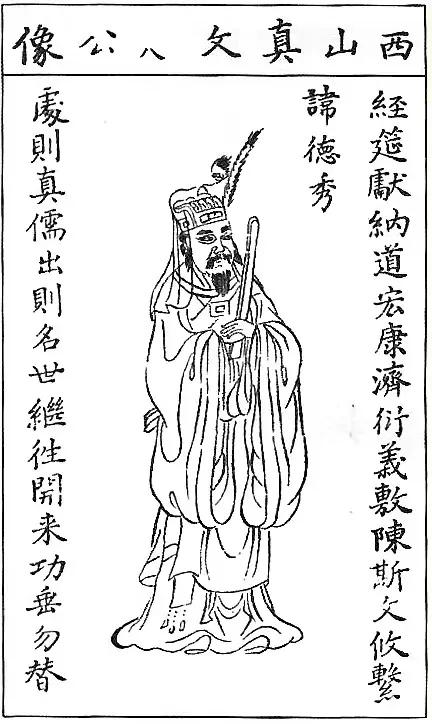 西山真文八公像
經筵獻納道宏康濟衍義敷陳斯文攸繫
諱德秀
處則真儒出則名世繼往開来功垂勿替